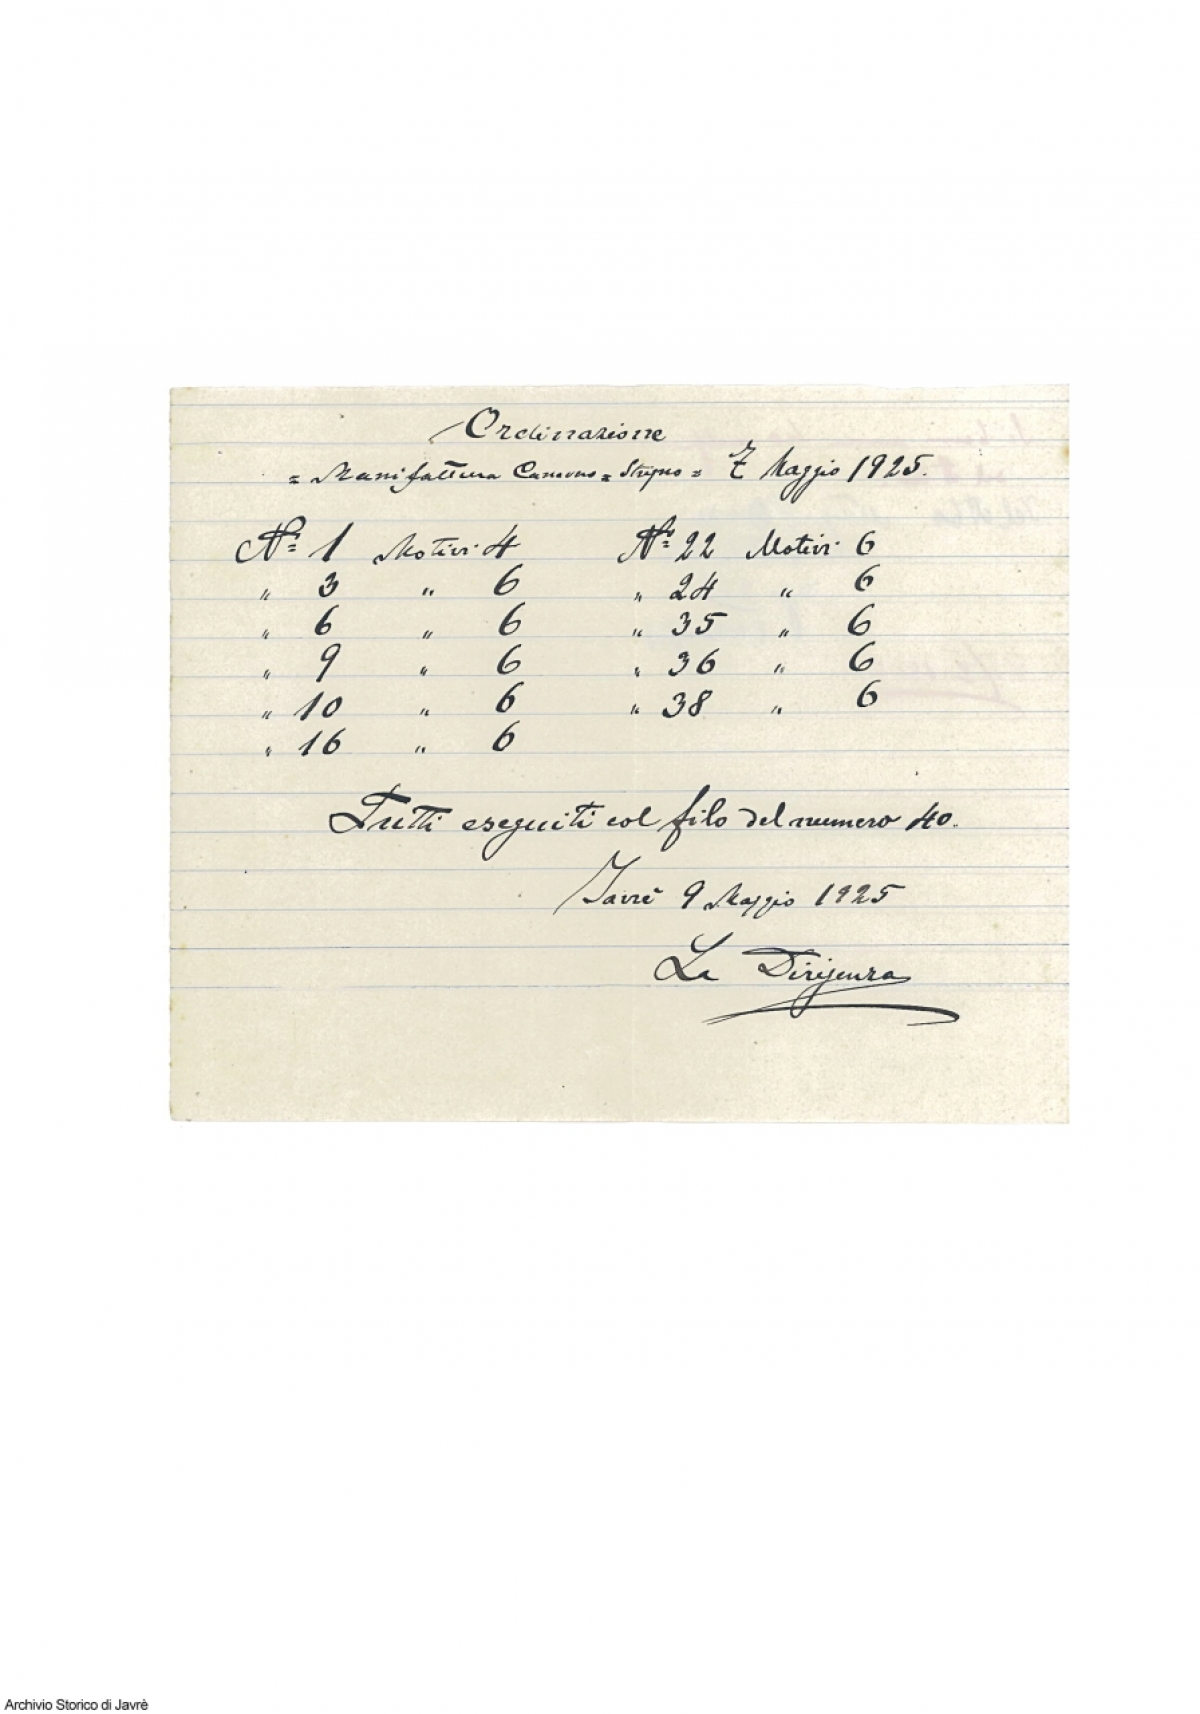 Ordinazione
= Manifattura = Strigno = 7 Maggio 1925.
N° 1 Motivi 4 N° 22 Motivi 6
" 3 " 6 " 24 " 6
" 6 " 6 " 35 " 6
" 9 " 6 " 36 " 6
" 10 " 6 " 38 " 6
" 16 " 6
Tutti eseguiti col filo del numero 40.
Javrè 9 Maggio 1925
La Dirigenza
Archivio Storico di Javrè